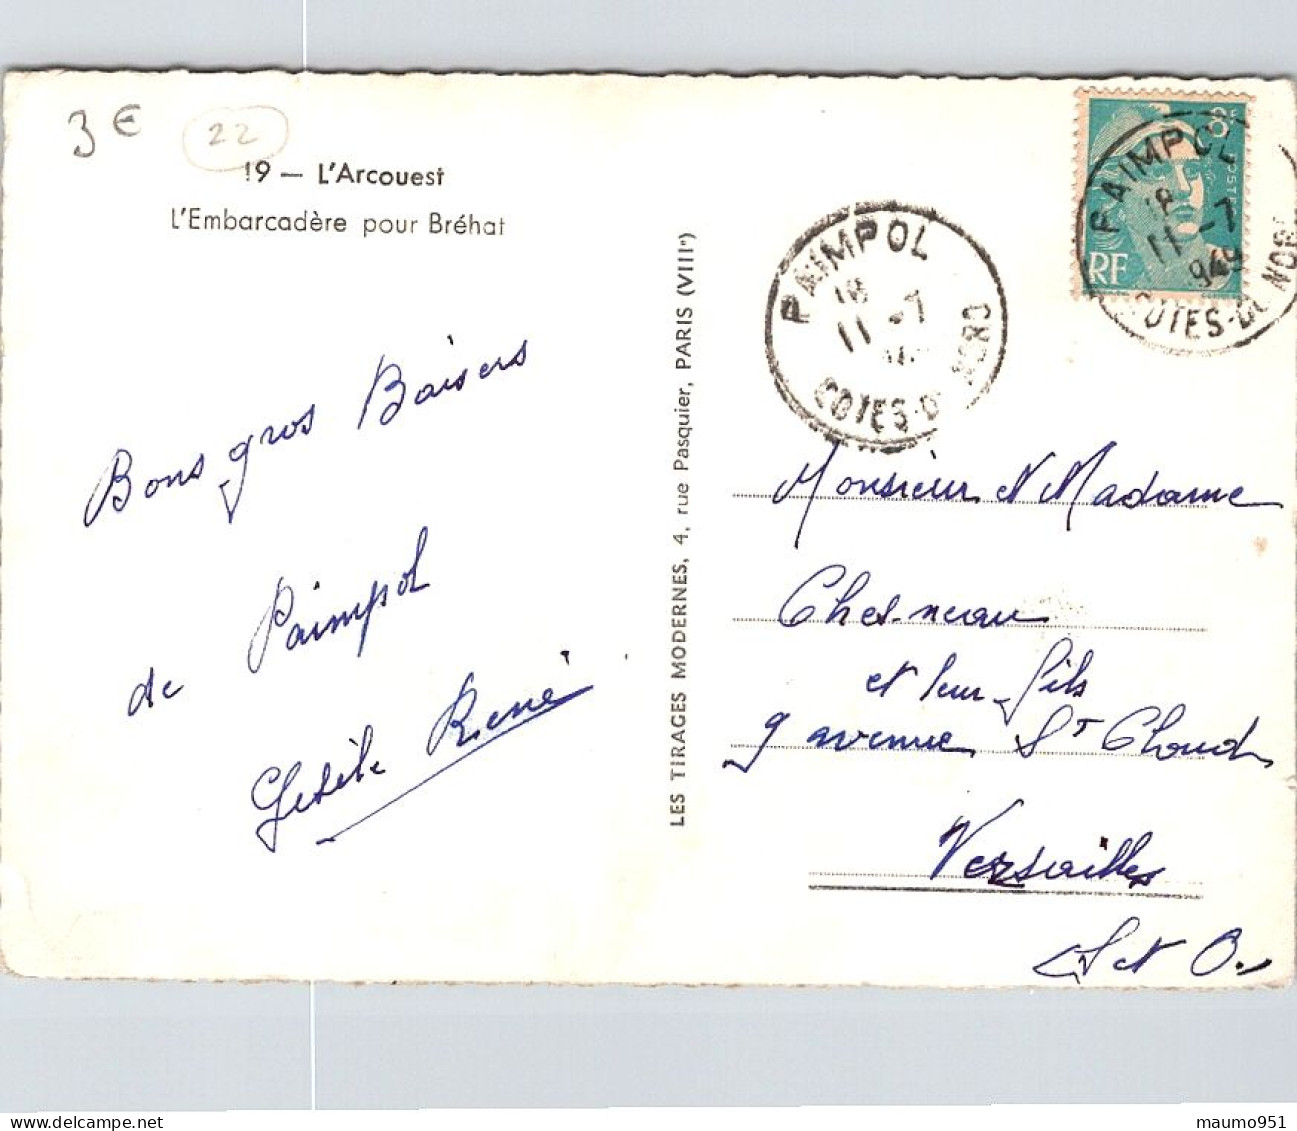 3 €
22
19 — L'Arcouest
L'Embarcadère pour Bréhat
Bons gros Baisers
de Paimpol
Gisèle René
LES TIRAGES MODERNES, 4, rue Pasquier, PARIS (VIIIe)
PAIMPOL
18
11 -7
COTES-DU-NORD
8F
POSTES
RF
PAIMPOL
18
11 -7
1949
COTES-DU-NORD
Monsieur et Madame
Chesneau
et leur fils
9 avenue St Cloud
Versailles
S et O.
maumo951